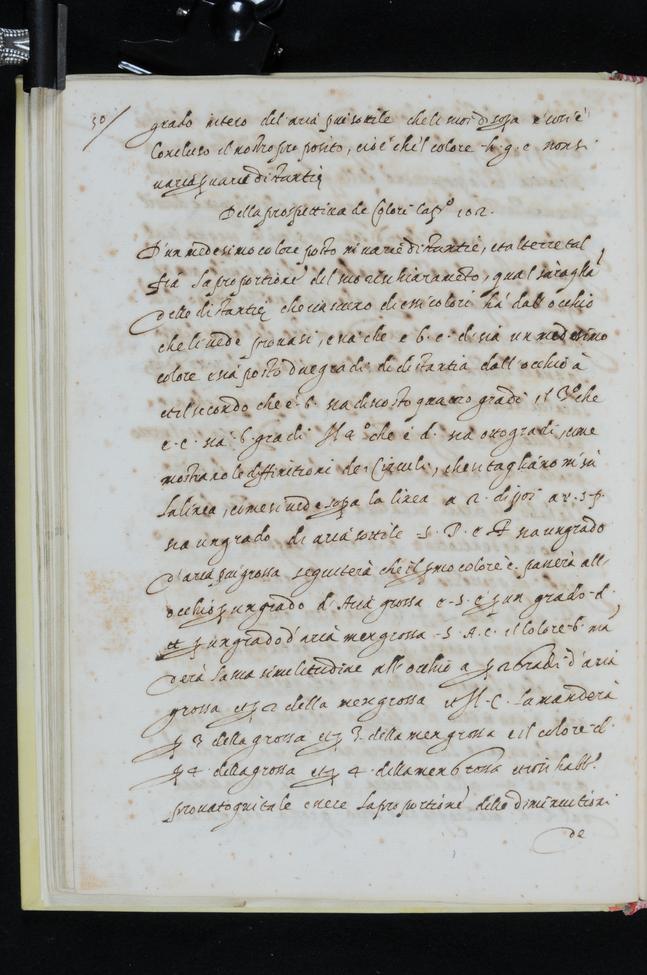 50/
grado intero del aria piu sotile che li moi di sopa e cosi è
Concluso il nostro pro posito, cioè ch'l colore h. g. c non si
varia p varie distantie
Della prospettiva de Colori Cap.º 102.
D'un medesimo colore posto in varie distantie, et altezze tal
fia la proportione del suo rischiaramento, qual sarà glia
delle distantie che ciascuno di essi colori ha dall occhio
che li vede provasi, e sia che e b. c. d. sia un medesimo
colore e sia posto due gradi di distantia dall'occhio à
et il secondo che è b. sia discosto quatro gradi, il 3º che
e c. sia 6 gradi Il 4º che è d. sia otto gradi, come
mostrano le diffinitioni de Circuli, che si tagliano in sù
la linea, come si vede sopa la linea a r. di poi a r. s. p.
sia un grado di aria sottile s. p. e t sia un grado
d'aria piu grossa seguiterà che il pmo colore e passerà all
occhio p un grado d'Aria grossa e s. e p un grado d.
et p un grado d'aria men grossa s. A. e. il colore b. man
derà la sua similitudine all occhio a p 2 gradi d'aria
grossa et p 2 della men grossa et Il C. la manderà
p 3 della grossa et p 3 della men grossa e il colore d.
p 4 della grossa et p 4 della men grossa et cosi habb.º
provato qui tale essere la proportione delle diminutioni
de